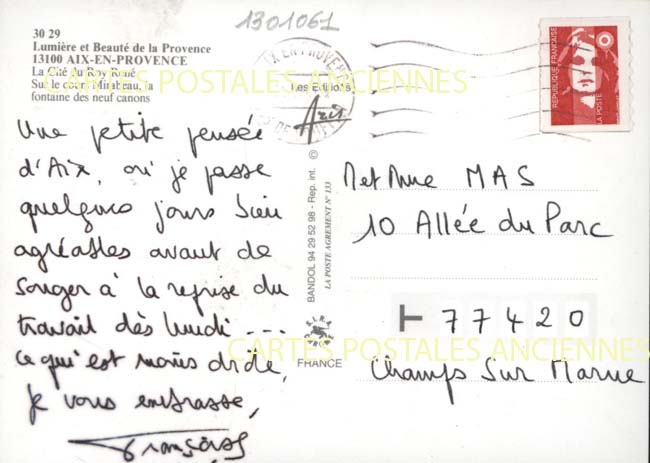 1301061
30 29
Lumière et Beauté de la Provence
13100 AIX-EN-PROVENCE
La Cité du Roy René
Sur le cours Mirabeau, la
fontaine des neuf canons
CARTES POSTALES ANCIENNES
X EN PROVEN
Les Editions
REPUBLIQUE FRANÇAISE
LA POSTE
Une petite pensée
d'Aix, où je passe
quelques jours bien
agréables avant de
songer à la reprise du
travail dès lundi ...
ce qui est moins drole,
je vous embrasse,
BANDOL 94 29 52 98 - Rep. int. ©
LA POSTE AGREMENT N° 133
FRANCE
M et Mme MAS
10 Allée du Parc
77420
Champs Sur Marne
CARTES POSTALES ANCIENNES